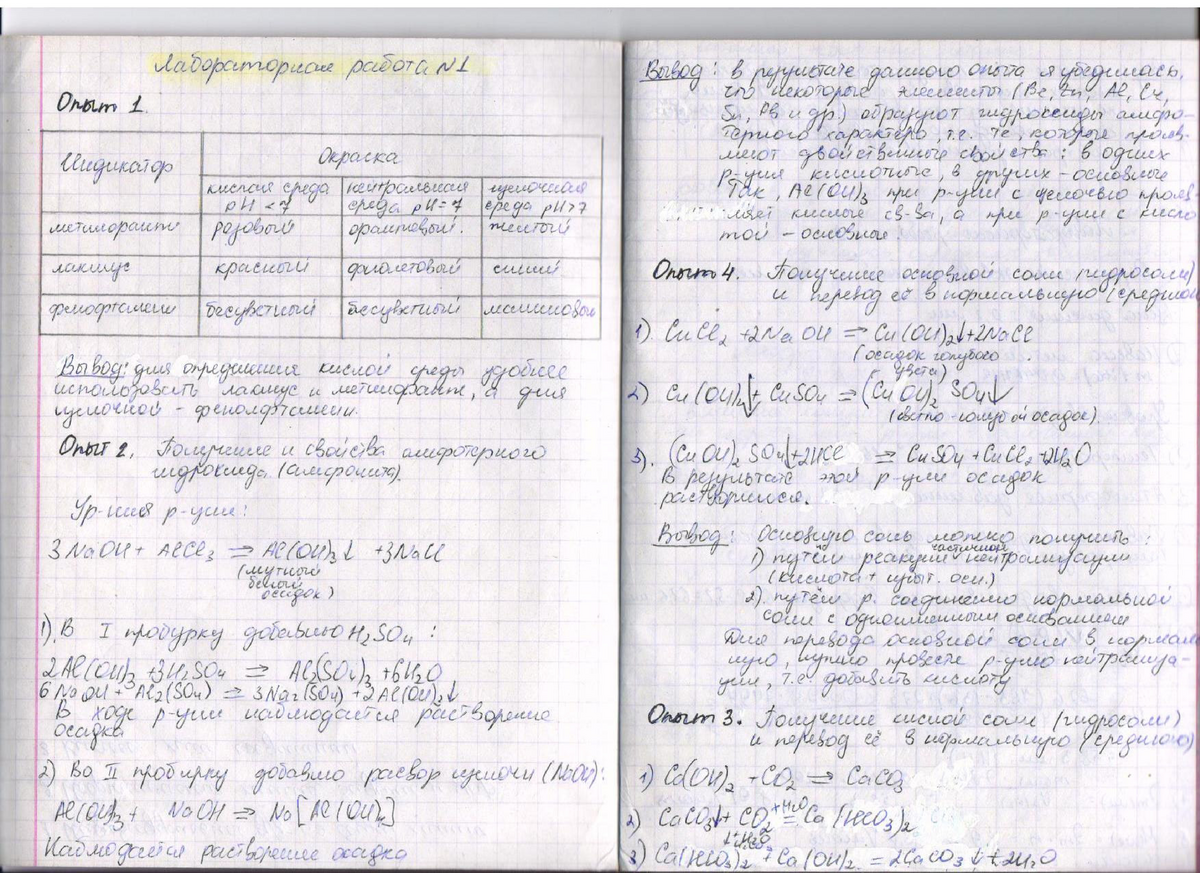 Лабораторная работа №1
Опыт 1.
Индикатор
Окраска
кислая среда pH < 7
нейтральная среда pH = 7
щелочная среда pH > 7
метилоранж розовый оранжевый. желтый
лакмус красный фиолетовый синий
фенолфталеин бесцветный бесцветный малиновый
Вывод: для определения кислой среды удобнее
использовать лакмус и метилоранж, а для
щелочной – фенолфталеин.
Опыт 2. Получение и свойства амфотерного
гидроксида. (амфолита).
Ур-ния р-ции:
3NaOH + AlCl3 ⇒ Al(OH)3↓ + 3NaCl
(мутный
белый
осадок)
1). В I пробирку добавляю H2SO4 :
2Al(OH)3 + 3H2SO4 ⇒ Al2(SO4)3 + 6H2O
6NaOH + Al2(SO4) ⇒ 3Na2(SO4) + 2Al(OH)3↓
В ходе р-ции наблюдается растворение
осадка
2) Во II пробирку добавляю раствор щелочи (NaOH):
Al(OH)3 + NaOH ⇒ Na[Al(OH)4]
Наблюдается растворение осадка
Вывод: в результате данного опыта я убедилась,
что некоторые элементы (Be, Zn, Al, Cr,
Sn, Pb и др.) образуют гидроксиды амфо-
терного характера, т.е. те, которые прояв-
ляют двойственные свойства: в одних
р-циях кислотные, в других – основные
Так, Al(OH)3 при р-ции с щелочью прояв
ляет кислые св-ва, а при р-ции с кисло
той – основные
Опыт 4. Получение основной соли (гидросоли)
и перевод её в нормальную (среднюю
1) CuCl2 + 2NaOH ⇒ Cu(OH)2↓ + 2NaCl
(осадок голубого
цвета)
2) Cu(OH)2↓ + CuSO4 ⇒ (CuOH)2 SO4↓
(светло-голубой осадок)
3). (CuOH)2 SO4↓ + 2HCl ⇒ CuSO4 + CuCl2 + 2H2O
В результате этой р-ции осадок
растворился.
Вывод: Основную соль можно получить:
1) путём реакции частичной нейтрализации
(кислота + изыт. осн.)
2). путём р. соединению нормальной
соли с одноименным основанием
Для перевода основной соли в нормаль
ную, нужно провести р-цию нейтрализа-
ции, т.е. добавить кислоту
Опыт 3. Получение кислой соли (гидросоли)
и перевод её в нормальную (среднюю)
1) Ca(OH)2 + CO2 ⇒ CaCO3
2) CaCO3↓ + CO2 + H2O = Ca(HCO3)2
3) Ca(HCO3)2 + Ca(OH)2 = 2CaCO3↓ + 2H2O